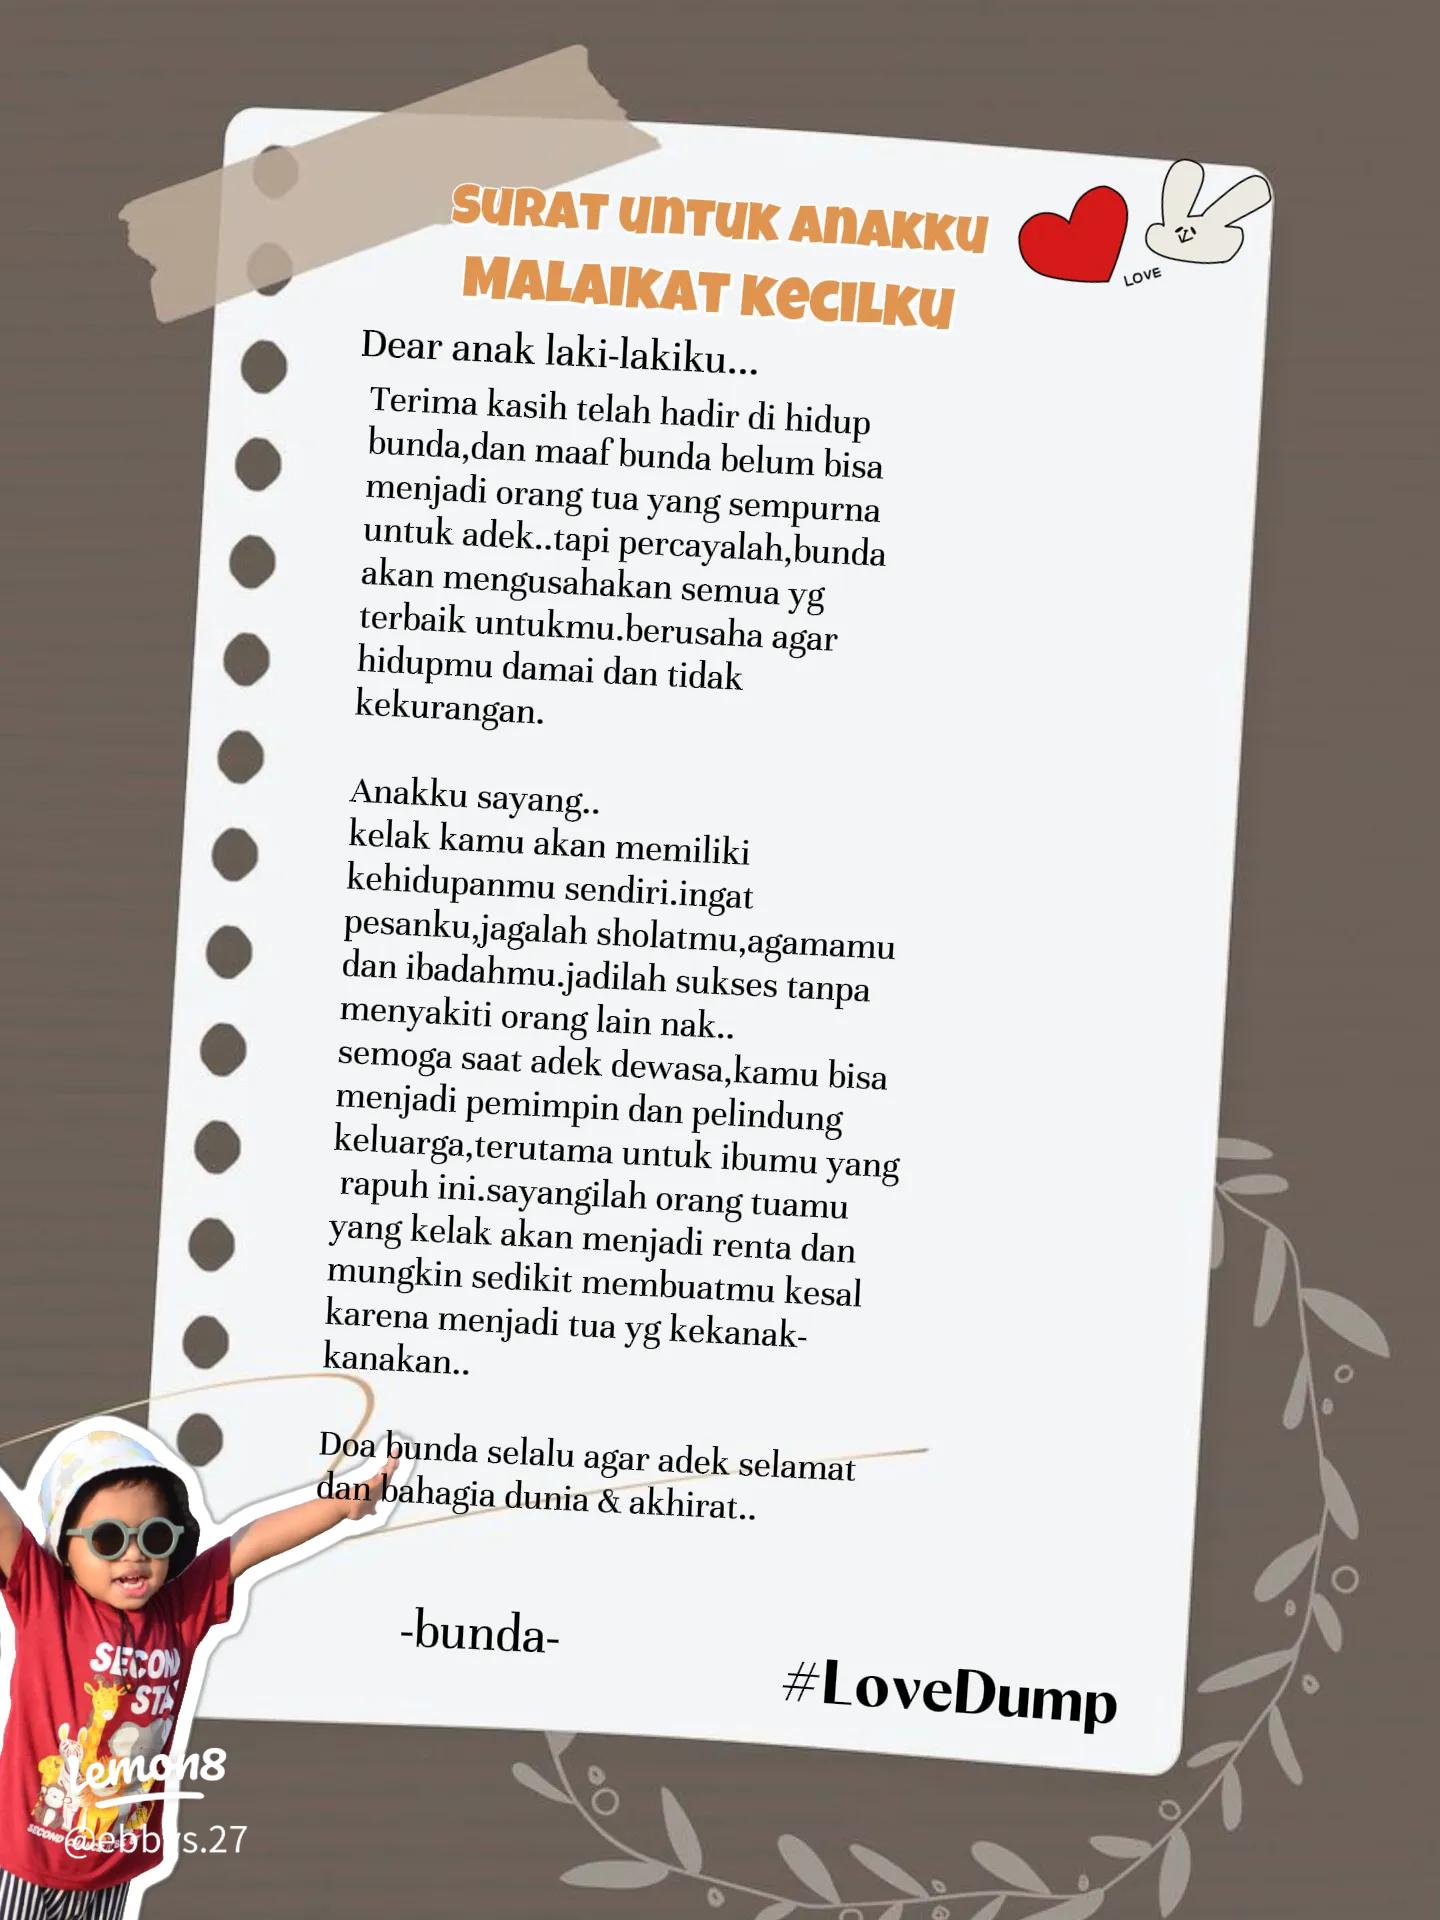 SURAT UNTUK ANAKKU
MALAIKAT KECILKU
LOVE
Dear anak laki-lakiku...
Terima kasih telah hadir di hidup
bunda,dan maaf bunda belum bisa
menjadi orang tua yang sempurna
untuk adek..tapi percayalah,bunda
akan mengusahakan semua yg
terbaik untukmu.berusaha agar
hidupmu damai dan tidak
kekurangan.
Anakku sayang..
kelak kamu akan memiliki
kehidupanmu sendiri.ingat
pesanku,jagalah sholatmu,agamamu
dan ibadahmu.jadilah sukses tanpa
menyakiti orang lain nak..
semoga saat adek dewasa,kamu bisa
menjadi pemimpin dan pelindung
keluarga,terutama untuk ibumu yang
rapuh ini.sayangilah orang tuamu
yang kelak akan menjadi renta dan
mungkin sedikit membuatmu kesal
karena menjadi tua yg kekanak-
kanakan..
Doa bunda selalu agar adek selamat
dan bahagia dunia & akhirat..
-bunda-
#LoveDump
SECOND
STA
Lemon8
SECOND
@ebbys.27